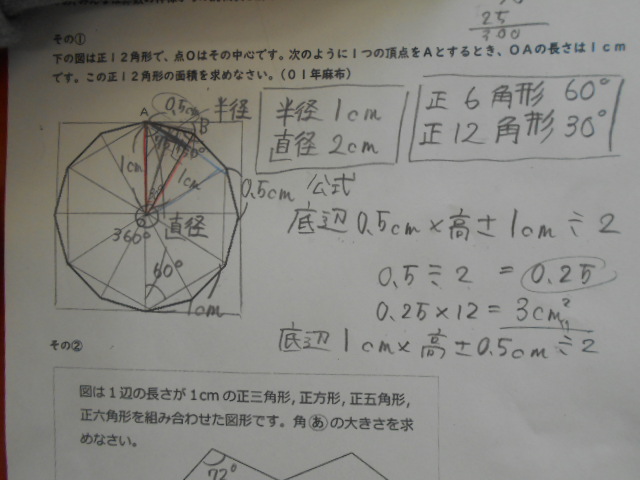 25
300
その①
下の図は正12角形で、点Oはその中心です。次のように1つの頂点をAとするとき、OAの長さは1cm
です。この正12角形の面積を求めなさい。(01年麻布)
A
0.5cm
半径
B
1cm
1cm
360°
直径
60°
1cm
0.5cm
半径 1cm
直径 2cm
正 6 角形 60°
正 12 角形 30°
公式
底辺 0.5cm × 高さ 1cm ÷ 2
0.5 ÷ 2 = 0.25
0.25 × 12 = 3cm²
底辺 1cm × 高さ 0.5cm ÷ 2
その②
図は1辺の長さが1cmの正三角形, 正方形, 正五角形,
正六角形を組み合わせた図形です。角あの大きさを求
めなさい。
72°